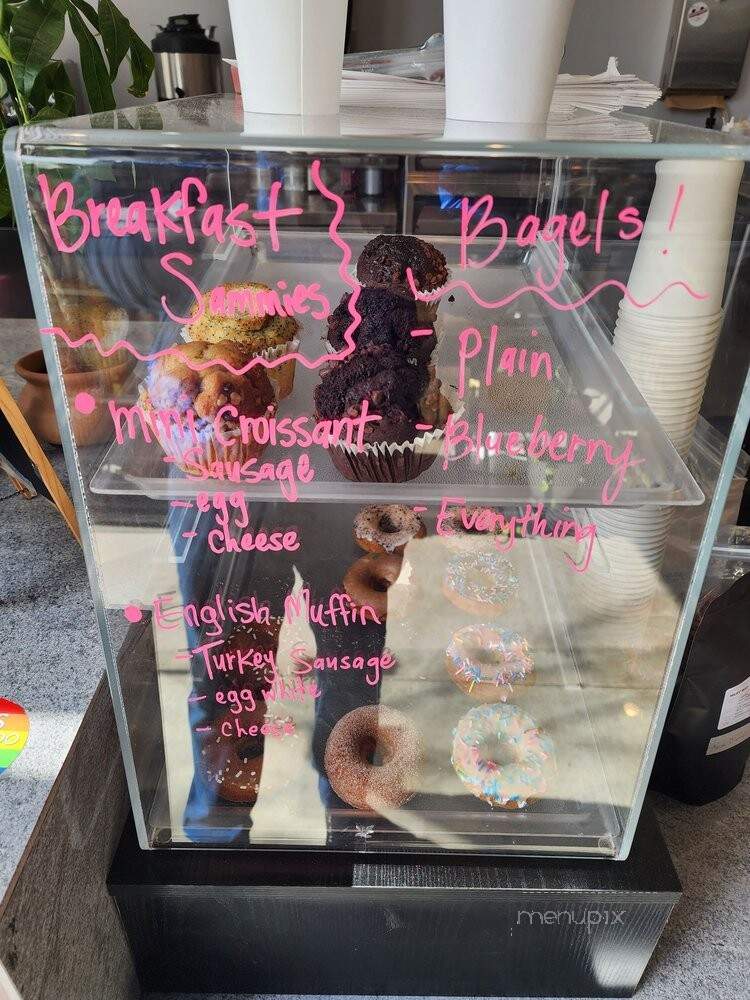 Breakfast
Sammies
• Mini Croissant
- Sausage
- egg
- cheese
• English Muffin
- Turkey Sausage
- egg white
- cheese
Bagels!
- Plain
- Blueberry
- Everything
menupix